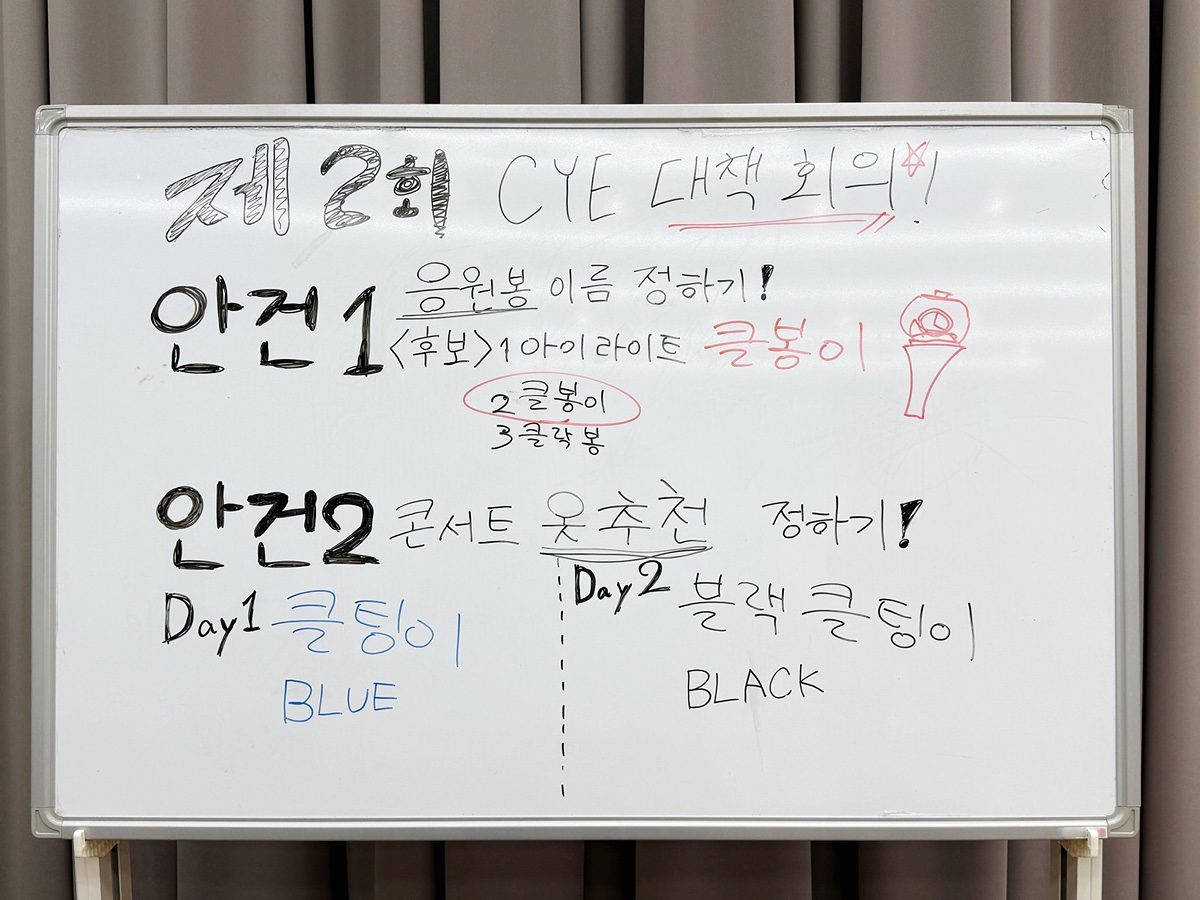 제2회 CYE 대책 회의!
안건1 응원봉 이름 정하기!
<후보> 1 아이라이트 클봉이
2 클봉이
3 클락봉
안건2 콘서트 옷 추천 정하기!
Day1 클팅이 Day2 블랙 클팅이
BLUE BLACK